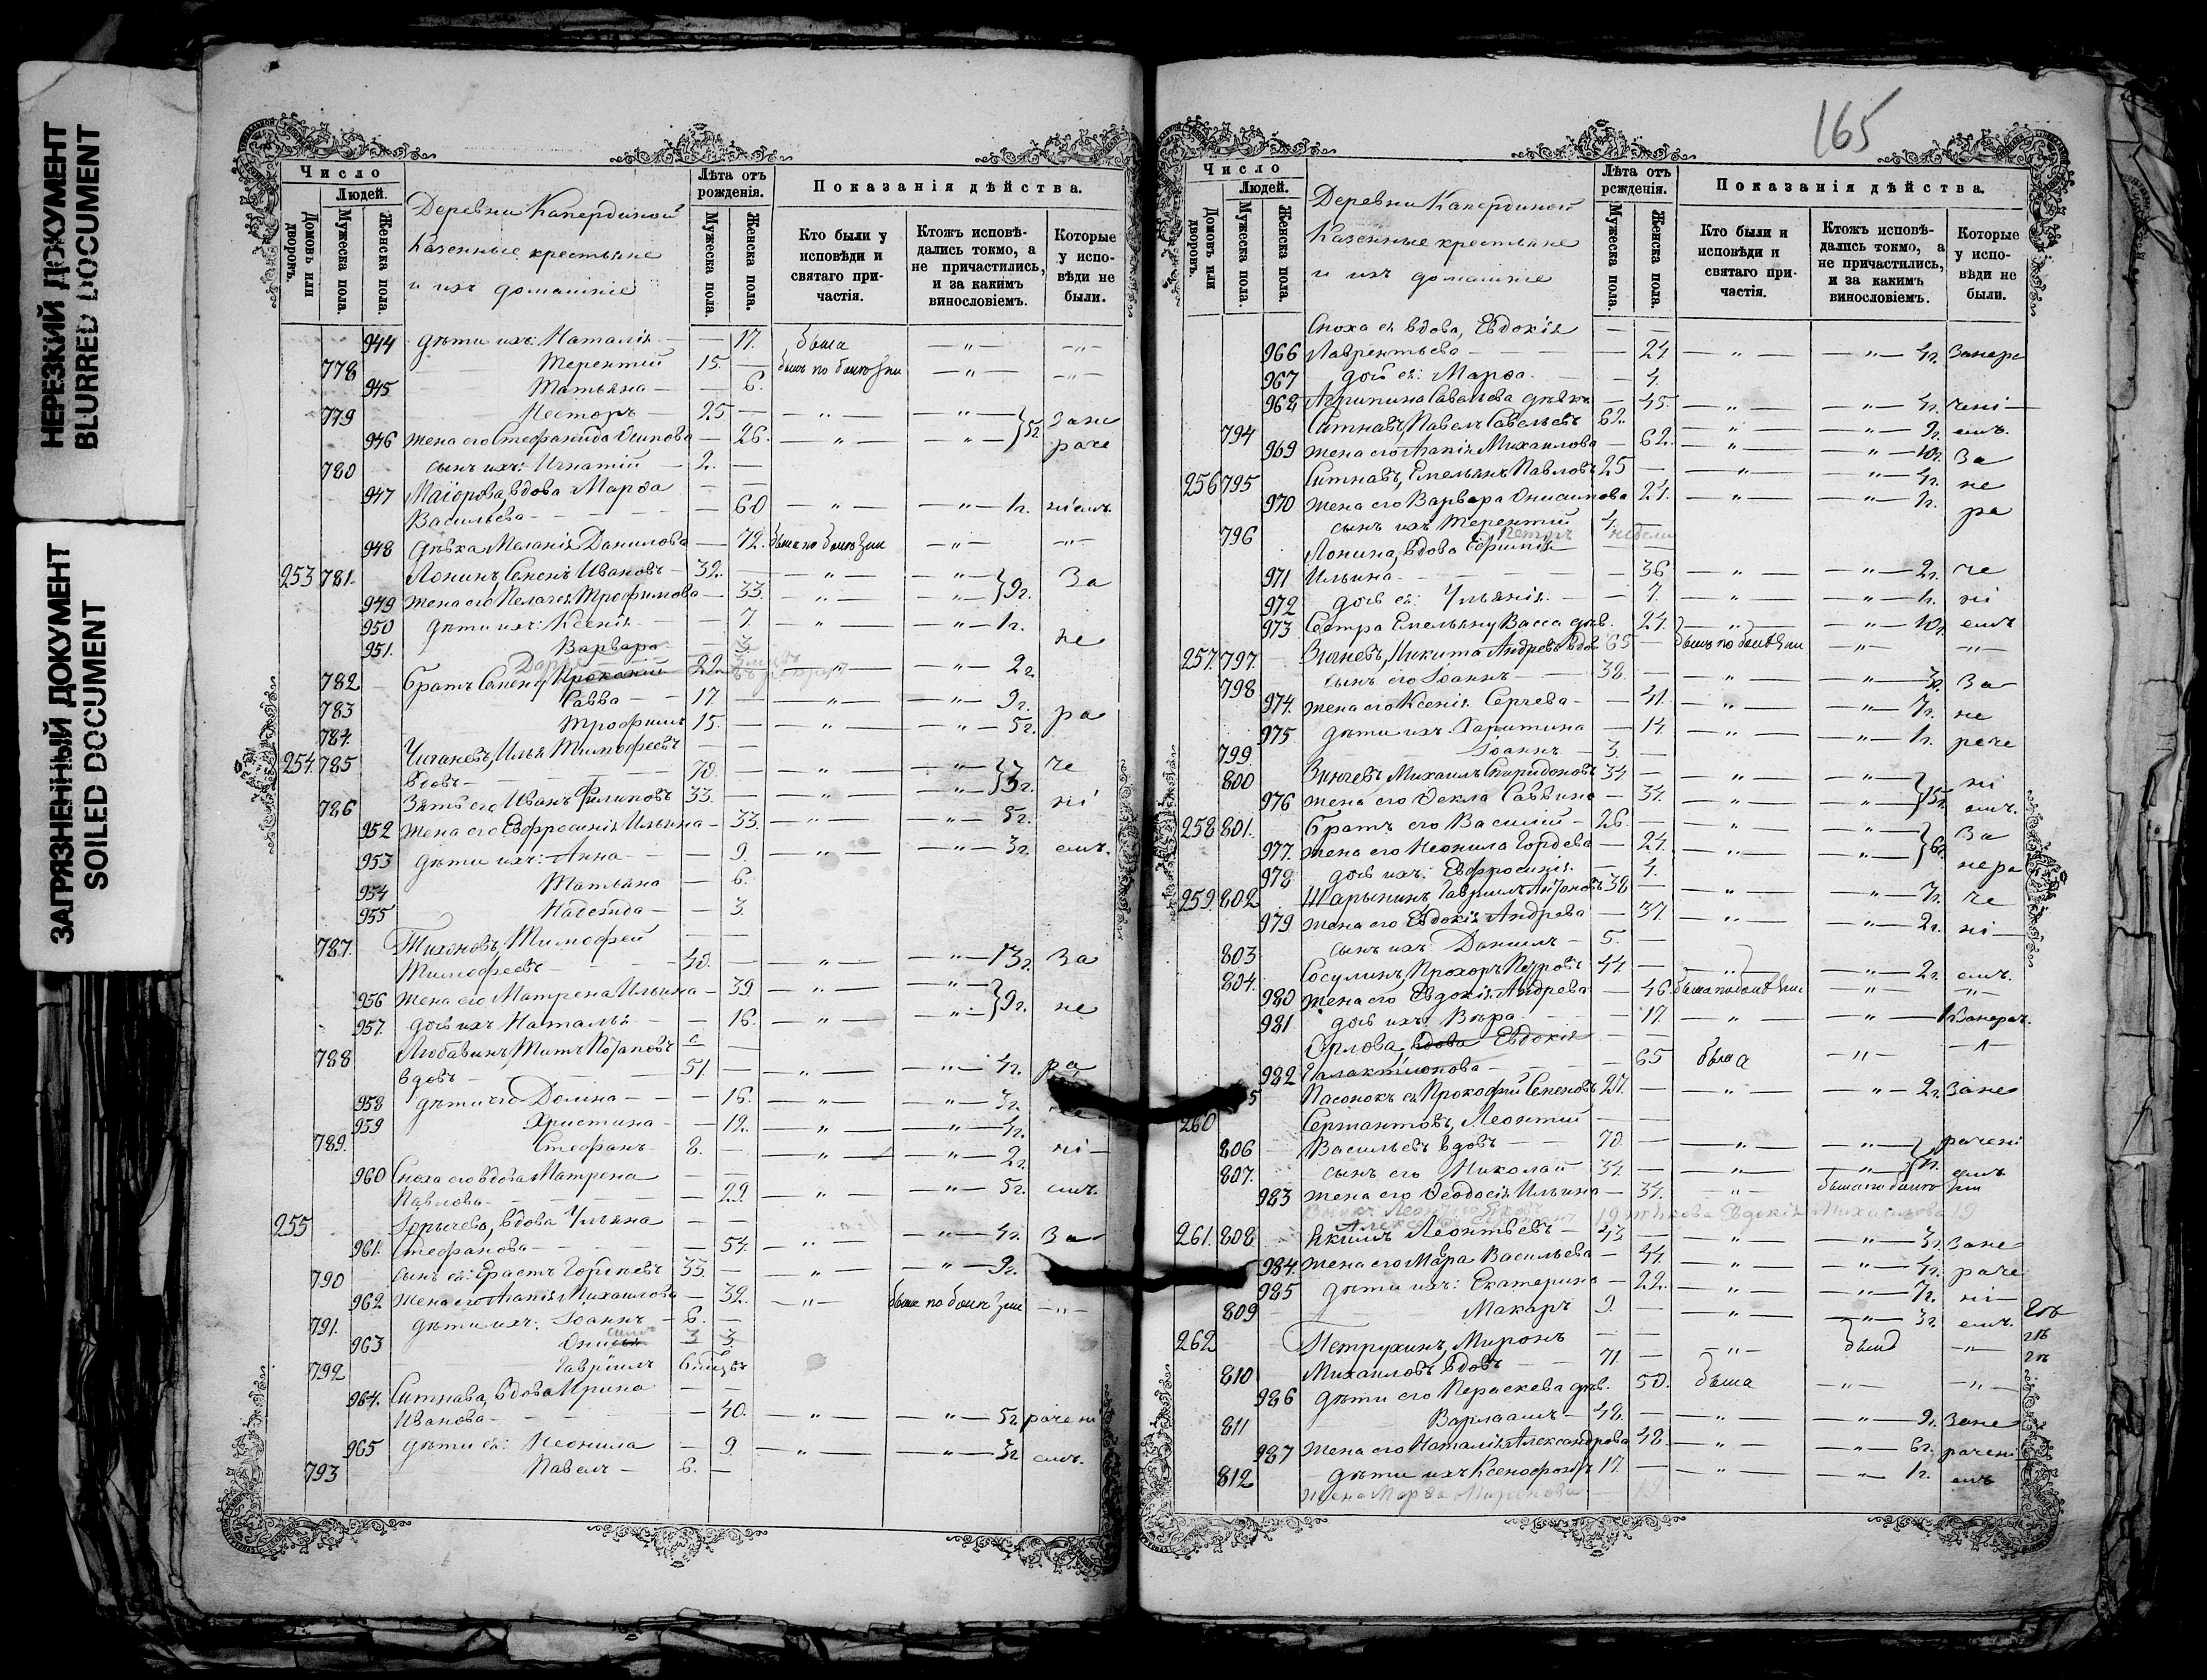 НЕРЕЗКИЙ ДОКУМЕНТ
BLURRED DOCUMENT
ЗАГРЯЗНЕННЫЙ ДОКУМЕНТ
SOILED DOCUMENT
Число
Людей.
Домовъ или дворовъ.
Мужеска пола.
Женска пола.
Деревни Капердиной
Казенные крестьяне
и ихъ домашніе
Лѣта отъ рожденія.
Мужеска пола.
Женска пола.
Показанія дѣйства.
Кто были у исповѣди и святаго причастія.
Ктожъ исповѣдались токмо, а не причастились, и за какимъ винословіемъ.
Которые у исповѣди не были.
944 дѣти ихъ: Наталія — 17. была — " —
778 Терентій 15. —
945 Татьяна — 6.
779 Несторъ 25 — — " — — " —
946 жена его Стефанида Осипова — 26. — " — — " —
780 сынъ ихъ: Игнатій 2. —
947 Маіорова, вдова Марѳа
Васильева — 60 — " — — " — 1г.
948 дѣвка Меланія Данилова — 72. — " —
253 781. Лонинъ, Семенъ Ивановъ 32. — — " — — " — За
949 жена его Пелагея Трофимова — 33. — " — — " — 9г.
950 дѣти ихъ: Ксенія — 7. — " — — " — 1г.
951. Варвара 3. не
782 Братъ Семену 22 — " — — " — 2г
783 Савва 17. — — " — — " — 9г. ра
784. Трофимъ 15. — — " — — " — 5г.
254. 785 Чигановъ, Илья Тимофеевъ
вдовъ 70. — — " — — " — че
786 Зять его Иванъ Филиповъ 33. — — " — — " — 3г. ні
952 жена его Евфросинія Ильина — 33. — " — — " — 5г.
953 дѣти ихъ: Анна — 9. — " — — " — 3г. емъ.
954 Татьяна — 6.
955 Надежда — 3.
787. Тихоновъ, Тимофей
Тимофеевъ 40. — — " — — " — 13г. За
956 жена его Матрена Ильина — 39. — " — — " —
957. дочь ихъ Наталья — 16. — " — — " — 9г. не
788 Любавинъ, Титъ Потаповъ
вдовъ 51 — — " — — " — 4г. ра
958 дѣти его Домна — 16. — " — — " — 3г.
959 Христина — 12. — " — — " — 4г.
789. Стефанъ 8. — — " — — " — 2г. ні
960 Сноха его вдова Матрена
Павлова — 29. — " — — " — 5г. емъ.
255 Горычева, вдова Ульяна
961. Стефанова — 54. — " — — " — 4г. За
790 сынъ ея: Ерастъ Гордѣевъ 33. — — " — — " — 9г.
962 жена его Агапія Михаилова — 32. — " — — " —
791. дѣти ихъ: Іоаннъ 6. —
963 3 3.
792 Гавріилъ
964. Ситнова, вдова Ирина
Иванова — 40. — " — — " — 5г рачені
965 дѣти ея: Неонила — 9 — " — — " — 3г емъ.
793 Павелъ 6. —
165
Число
Людей.
Домовъ или дворовъ.
Мужеска пола.
Женска пола.
Деревни Капердиной
Казенные крестьяне
и ихъ домашніе
Лѣта отъ рожденія.
Мужеска пола.
Женска пола.
Показанія дѣйства.
Кто были и исповѣди и святаго причастія.
Ктожъ исповѣдались токмо, а не причастились, и за какимъ винословіемъ.
Которые у исповѣди не были.
Сноха ея вдова, Евдокія
966 Лаврентьева — 24. — " — — " — 4г. Занера
967 дочь ея: Марѳа — 4.
968 Агрипина Савельева дѣвка — 45. — " — — " — 4г. чені
794 Ситновъ, Павелъ Савельевъ 62. — — " — — " — 9г. емъ.
969 жена его Агапія Михаилова — 62. — " — — " — 10г. За
256 795 Ситновъ, Емельянъ Павловъ 25 — — " — — " — 4г. не
970 жена его Варвара Онисимова 24. — " — — " — 1г. ра
796 сынъ ихъ Терентій 4.
Петръ недѣли
Лонина, вдова Ефимія
971 Ильина — 36 — " — — " — 2г. че
972 дочь ея: Ульянія — 7. — " — — " — 1г. ні
973 Сестра Емельяну Васса дѣв. 24. — " — — " — 10г. емъ
257. 797. Зиневъ, Никита Андреевъ вдов. 65 — — " —
798 сынъ его Іоаннъ 38. — — " — — " — 3г. За
974. жена его Ксенія Сергѣева — 41. — " — — " — 7г. не
975 дѣти ихъ Харитина — 14 — " — — " — 1г. раче
799. Іоаннъ 3. —
800 Зиневъ, Михаилъ Спиридоновъ 34. — — " — — " — ні
976 жена его Ѳекла Саввина — 34. — " — — " — 15г. емъ.
258 801. Братъ его Василій 26. — — " — — " — За
977. жена его Неонила Гордѣева — 24. — " — — " — 6г. нера
978 дочь ихъ: Евфросинія — 4.
259. 802. Шарыпинъ, Гавріилъ Антоновъ 38 — — " — — " — 7г. че
979 жена его Евдокія Андреева — 37 — " — — " — 2г. ні
803 сынъ ихъ: Даніилъ 5. —
804. Сосулинъ, Прохоръ Петровъ 44. — — " — — " — 2г. емъ.
980 жена его Евдокія Андреева — 46. — " —
981 дочь ихъ: Вѣра — 17. — " — — " —
Орлова, вдова Евдокія
982 Галактіонова — 65 была — " —
Пасонокъ ея Прокофій Семеновъ 27. — — " — — " — 2г. Зане
260 Сержантовъ, Леонтій
806 Васильевъ вдовъ 70. — — " — — " — рачені
807. сынъ его Николай 34. — — " — — " — емъ
983 жена его Ѳеодосія Ильина — 34. — " —
261. 808 Акимъ Леонтьевъ 43 — — " — — " — 3г. Зане
984. жена его Мавра Васильева — 44. — " — — " — 4г. раче
985 дѣти ихъ: Екатерина — 22. — " — — " — 7г. ні
809 Макаръ 9. — — " — — " — 3г. емъ.
262 Петрухинъ, Миронъ
810 Михаиловъ вдовъ 71. — — " — былъ — " —
986 дѣти его Параскева дѣв. 50. была — " — — " —
811 Варлаамъ 42. — — " — — " — 9г. Зане
987 жена его Наталія Александрова 48. — " — — " — 6г. рачені
812 дѣти ихъ Ксенофонтъ 17. — — " — — " — 1г. емъ
жена Марѳа Миронова — 19